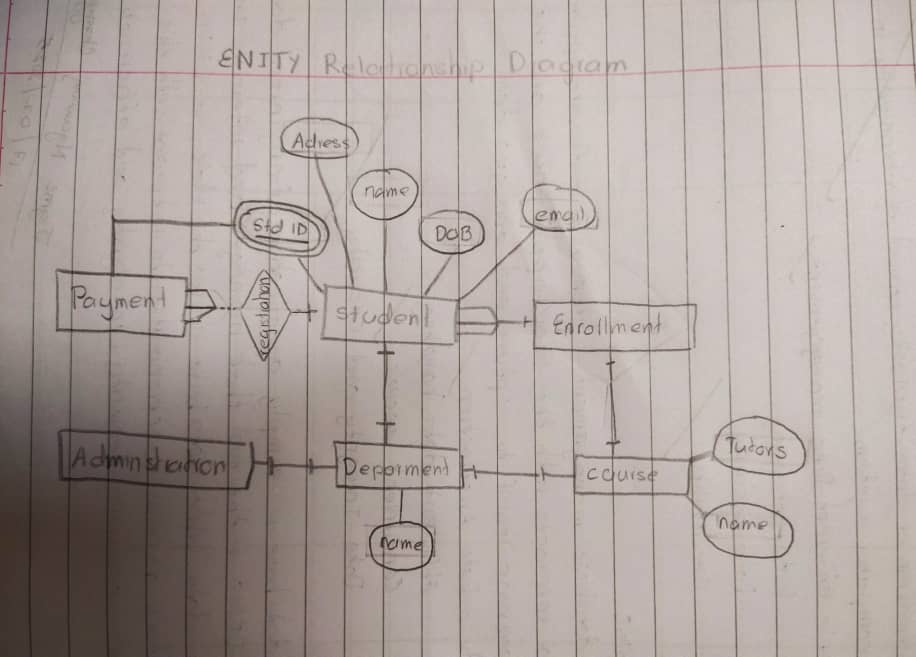 ENITY Relationship Diagram
Adress
name
email
Std ID
DOB
Payment
registration
Student
Enrollment
Adminstration
Deparment
course
Tutors
name
name